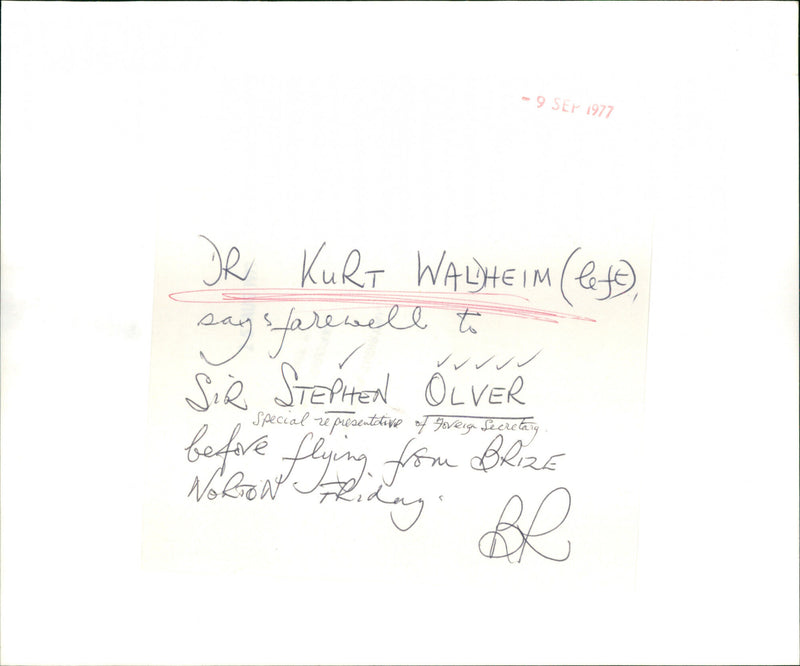 - 9 SEP 1977
DR KURT WALDHEIM (left),
says farewell to
SIR STEPHEN OLVER
special representative of Foreign Secretary.
before flying from BRIZE
NORTON Friday.
BR